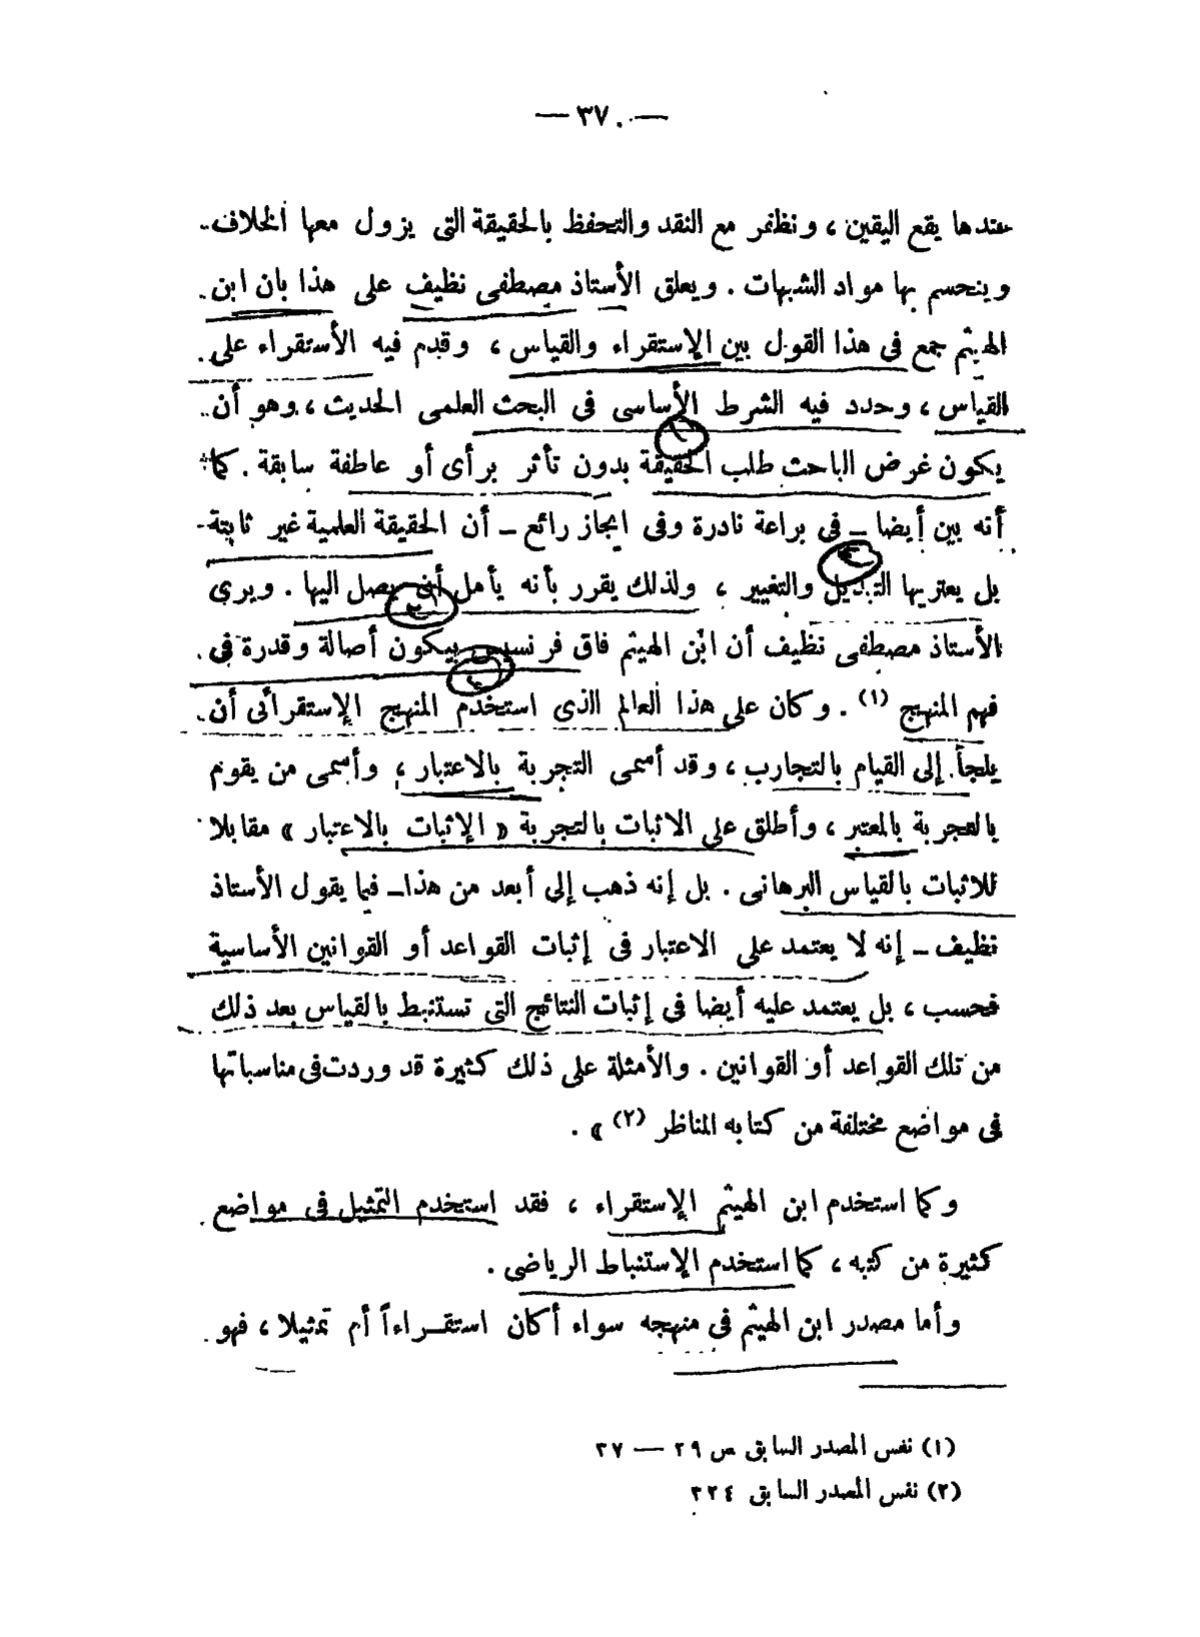 — ٣٧٠ —
عندها يقع اليقين ، ونظفر مع النقد والتحفظ بالحقيقة التى يزول معها الخلاف
وينحسم بها مواد الشبهات . ويعلق الأستاذ مصطفى نظيف على هذا بان ابن
الهيثم جمع فى هذا القول بين الإستقراء والقياس ، وقدم فيه الأستقراء على
القياس ، وحدد فيه الشرط الأساسى فى البحث العلمى الحديث ، وهو أن
يكون غرض الباحث طلب الحقيقة بدون تأثر برأى أو عاطفة سابقة . كما
أنه بين أيضا – فى براعة نادرة وفى ايجاز رائع – أن الحقيقة العلمية غير ثابتة
بل يعتريها التبديل والتغيير ، ولذلك يقرر بأنه يأمل أن يصل اليها . ويرى
الأستاذ مصطفى نظيف أن ابن الهيثم فاق فرنسيس بيكون أصالة وقدرة فى
فهم المنهج (١) . وكان على هذا العالم الذى استخدم المنهج الإستقرائى أن
يلجأ إلى القيام بالتجارب ، وقد أسمى التجربة بالاعتبار ، وأسمى من يقوم
بالتجربة بالمعتبر ، وأطلق على الاثبات بالتجربة « الإثبات بالاعتبار » مقابلا
للاثبات بالقياس البرهانى . بل إنه ذهب إلى أبعد من هذا – فيما يقول الأستاذ
نظيف – إنه لا يعتمد على الاعتبار فى إثبات القواعد أو القوانين الأساسية
فحسب ، بل يعتمد عليه أيضا فى إثبات النتائج التى تستنبط بالقياس بعد ذلك
من تلك القواعد أو القوانين . والأمثلة على ذلك كثيرة قد وردت فى مناسباتها
فى مواضع مختلفة من كتابه المناظر (٢) » .
وكما استخدم ابن الهيثم الإستقراء ، فقد استخدم التمثيل فى مواضع
كثيرة من كتبه ، كما استخدم الإستنباط الرياضى .
وأما مصدر ابن الهيثم فى منهجه سواء أكان استقراءاً أم تمثيلا ، فهو
(١) نفس المصدر السابق ص ٢٩ — ٣٧
(٢) نفس المصدر السابق ٣٢٤